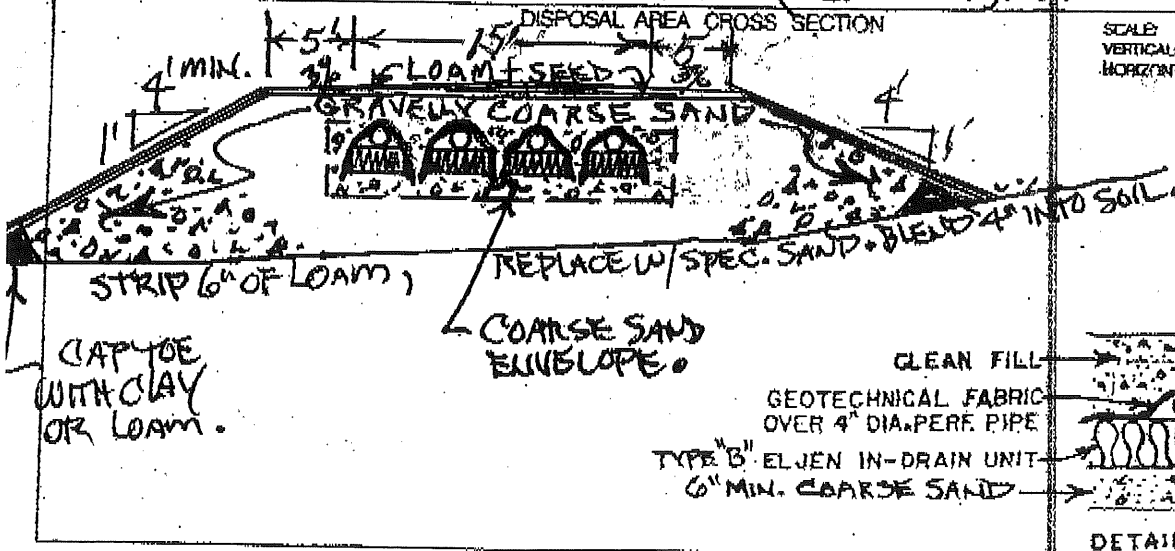 DISPOSAL AREA CROSS SECTION
SCALE:
VERTICAL
HORIZON
5' 15' 5'
4' MIN.
3% LOAM + SEED 3%
GRAVELLY COARSE SAND
4'
1'
1'
STRIP 6" OF LOAM, REPLACE W/ SPEC. SAND + BLEND 4" INTO SOIL.
COARSE SAND
ENVELOPE.
CAP TOE
WITH CLAY
OR LOAM.
CLEAN FILL
GEOTECHNICAL FABRIC
OVER 4" DIA. PERF. PIPE
TYPE "B" ELJEN IN-DRAIN UNIT
6" MIN. COARSE SAND
DETAI